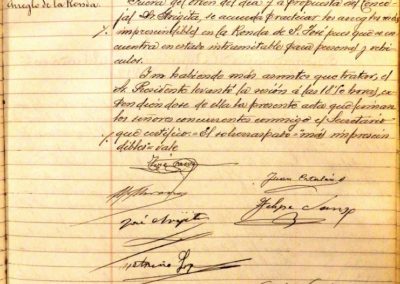 Arreglo de la Ronda
Fuera del orden del día y a propuesta del Conce-
jal Sr. Arijita, se acuerda practicar los arreglos más
impresindibles en la Ronda de S. José pues que se en-
cuentra en estado intransitable para personal y vehí-
culos.
Y no habiendo más asuntos que tratar, el
Sr. Presidente levantó la sesión á las 18'10 horas, ex-
tendiéndose de ella la presente acta que firman
los señores concurrentes conmigo el Secretario
que certifico = El sobreraspado = más imprescin
dibles = vale
José
Juan
José Arijita
Felipe Sanz
Antonio